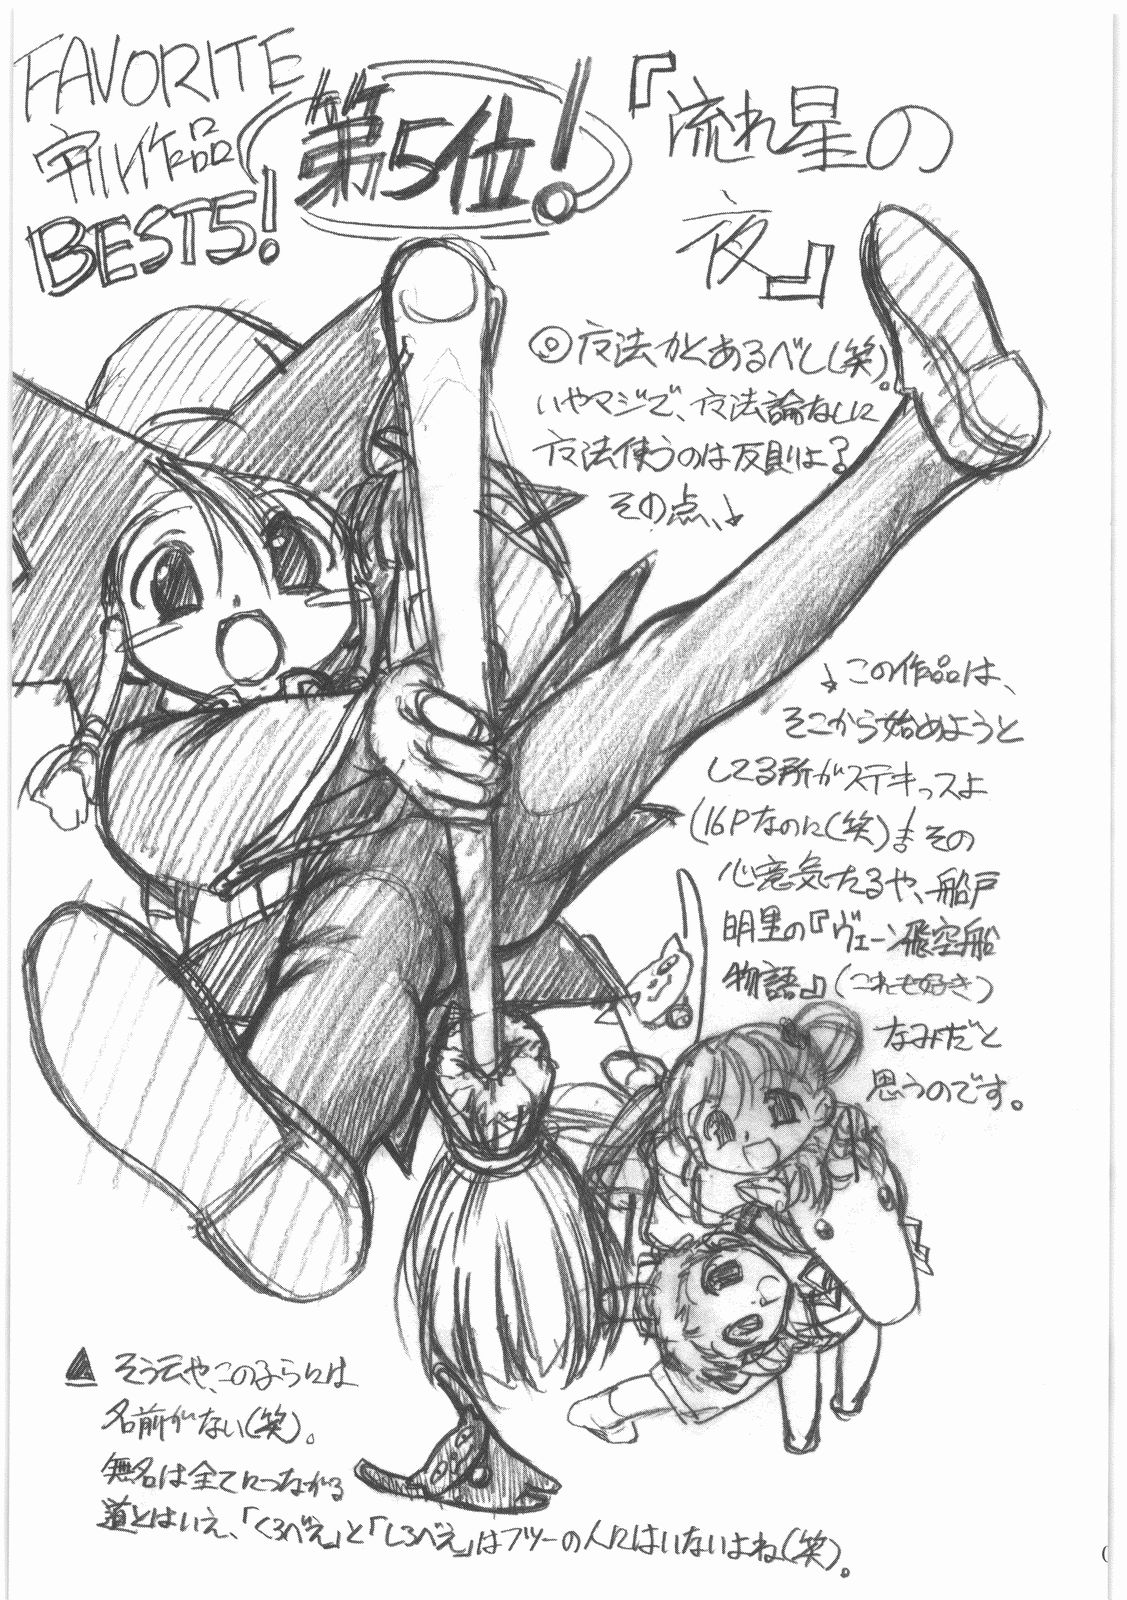 FAVORITE
宰川作品
BEST5!
第5位!
『流れ星の
夜』
◎広法かとあるべし(笑)。
いやマジで、広法論なしに
広法使うのは反則よ?
その点、↓
↓この作品は、
そこから始めようと
してる所がステキっスよ
(16Pなのに(笑))。その
心意気たるや、船戸
明里の『ヴェーン飛空船
物語』(これも好き)
なみだと
思うのです。
▲そう云や、この子らには
名前がない(笑)。
無名は全てにつながる
道とはいえ、「くろべえ」と「しろべえ」はフツーの人にはいないよね(笑)。